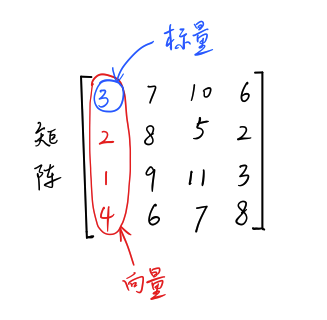 标量
3 7 10 6
2 8 5 2
1 9 11 3
4 6 7 8
矩
阵
向量